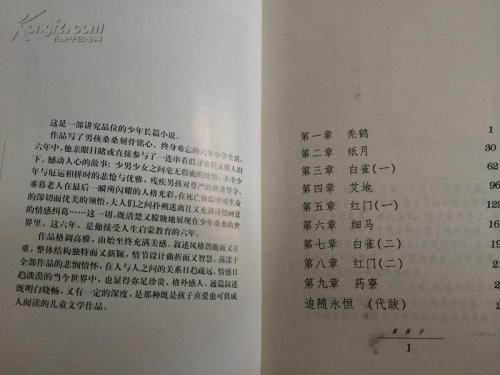 Kongfz.com
这是一部讲究品位的少年长篇小说。
作品写了男孩桑桑刻骨铭心、终身难忘的六年小学生活。
六年中,他亲眼目睹或直接参与了一连串看似寻常但又催人泪
下、撼动人心的故事:少男少女之间毫无瑕疵的纯情,不幸少
年与厄运相拼时的悲怆与优雅,残疾男孩对尊严的执著坚守,
垂暮老人在最后一瞬所闪耀的人格光彩,在死亡体验中对生命
的深切而优美的领悟,大人们之间扑朔迷离且又充满诗情画意
的情感纠葛……这一切,既清楚又朦胧地展现在少年桑桑的世
界里。这六年,是他接受人生启蒙教育的六年。
作品格调高雅,由始至终充满美感。叙述风格谐趣而又庄
重,整体结构独特而又新颖,情节设计曲折而又智慧。荡漾于
全部作品的悲悯情怀,在人与人之间的关系日趋疏远、情感日
趋淡漠的当今世界中,也显得弥足珍贵、格外感人。通篇叙述
既明白晓畅,又有一定的深度,是那种既是孩子喜爱也可供成
人阅读的儿童文学作品。
第一章 秃鹤 1
第二章 纸月 30
第三章 白雀(一) 62
第四章 艾地 96
第五章 红门(一)
第六章 细马
第七章 白雀(二)
第八章 红门(二)
第九章 药寮
追随永恒 (代跋)
草房子
1